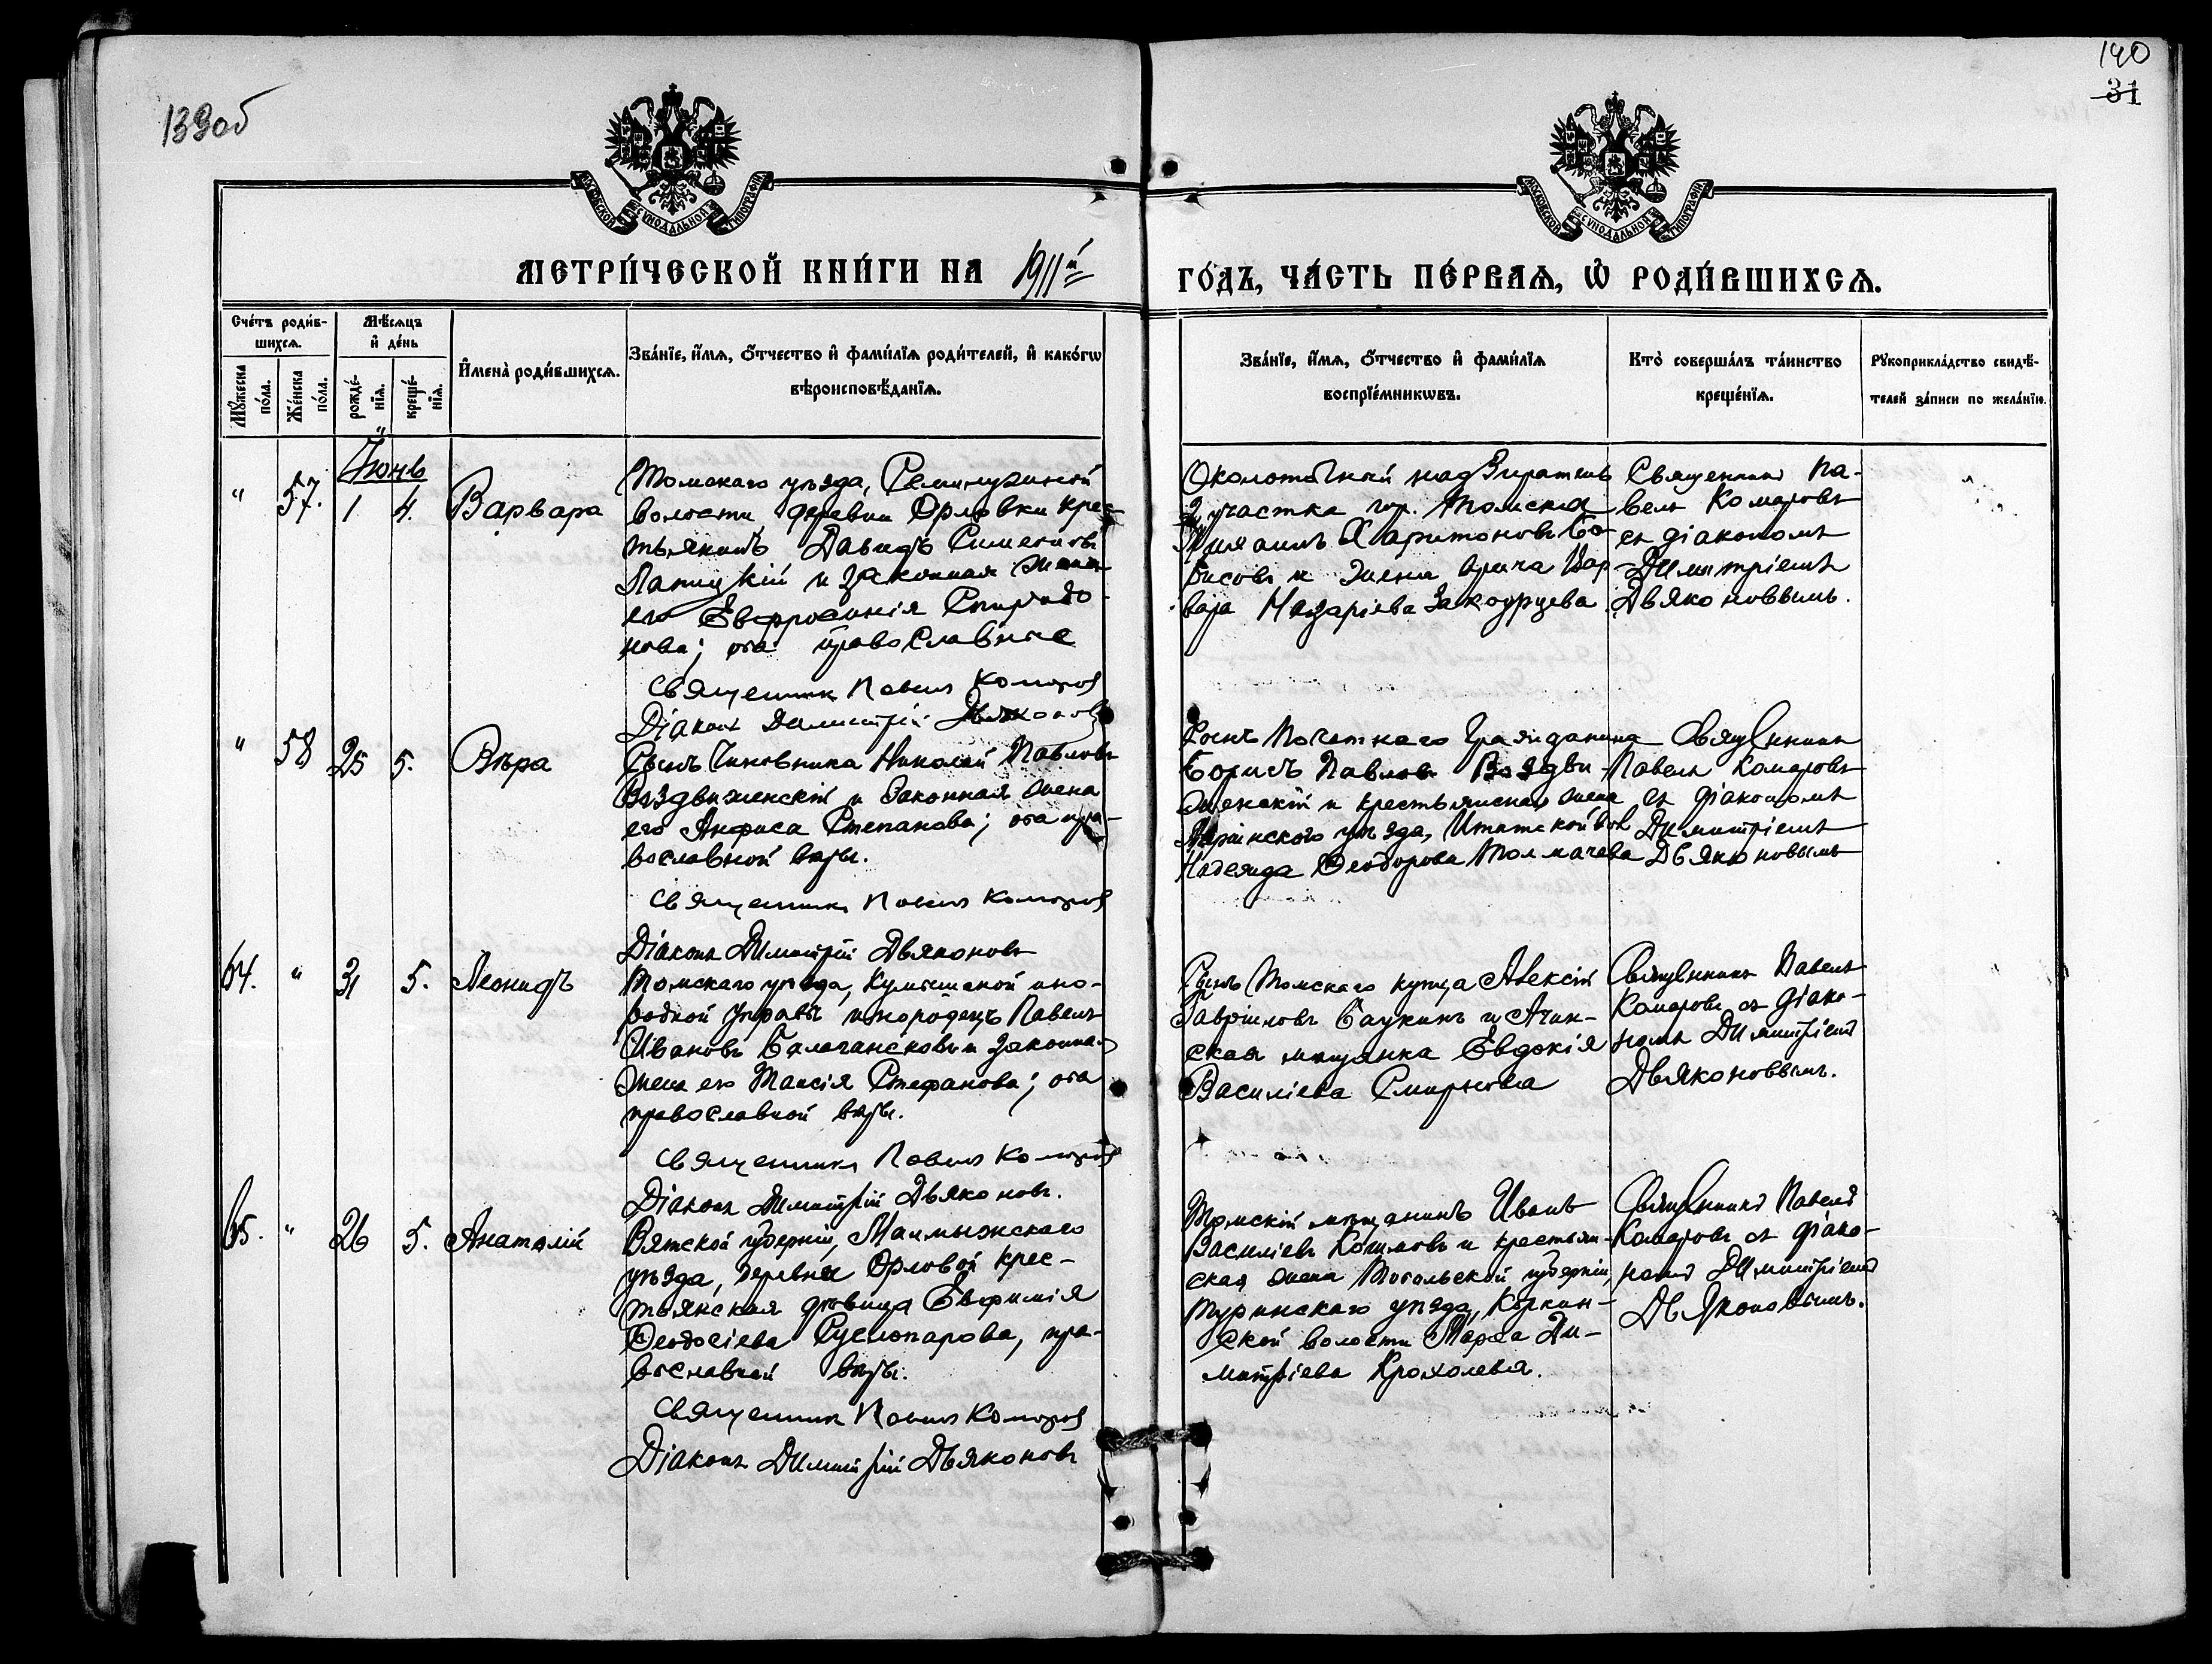 139об
140
31
МОСКОВСКОЙ СУНОДАЛЬНОЙ ТИПОГРАФІИ
МОСКОВСКОЙ СУНОДАЛЬНОЙ ТИПОГРАФІИ
МЕТРИ́ЧЕСКОЙ КНИ́ГИ НА 1911й
ГО́ДЪ, ЧА́СТЬ ПЕ́РВАЯ, Ѡ РОДИ́ВШИХСЯ.
Сче́тъ роди́в-
шихся.
Мѣ́сяцъ
и де́нь
Мꙋ́жеска
по́ла.
Же́нска
по́ла.
рожде́-
нїя.
креще́-
нїя.
Имена̀ роди́вшихся.
Зва́нїе, и́мя, о́тчество и фами́лїя роди́телей, и како́гѡ
вѣроисповѣ́данїя.
Зва́нїе, и́мя, о́тчество и фами́лїя
воспрїе́мникѡвъ.
Кто̀ соверша́лъ та́инство
креще́нїя.
Рꙋкоприкла́дство свидѣ́-
телей за́писи по жела́нїю.
Іюнь
" 57. 1 4. Варвара
Томскаго уѣзда, Семилужной
волости, деревни Орловки кре-
тьянинъ Давидъ
и законная жена
его Евфросинія Спиридо-
нова; оба православные
Священник Павел Комаров
Діаконъ Димитрій Дьяконовъ
Околоточный надзиратель
2 участка гор. Томска
Харитоновъ Бо-
рисовъ и жена врача Вар-
вара Назаріева
Священникъ Па-
велъ Комаровъ
съ діакономъ
Димитріемъ
Дьяконовымъ.
" 58 25 5. Вѣра
Сынъ Чиновника Николай Павловъ
Воздвиженскій и законная жена
его Анфиса Степанова; оба пра-
вославной вѣры.
Священникъ Павел Комаров
Діаконъ Димитрій Дьяконовъ
Сынъ Почетнаго Гражданина
Борисъ Павловъ Воздви-
женскій и крестьянская жена
Маріинскаго уѣзда, Итатской вол
Надежда Ѳеодорова Толмачева
Священникъ
Павелъ Комаровъ
съ діакономъ
Димитріемъ
Дьяконовымъ
64. " 31 5. Леонидъ
Томскаго уѣзда, ино-
родной управы инородецъ Павелъ
Ивановъ Балагансковъ и законная
жена его Таисія Стефанова; оба
православной вѣры.
Священникъ Павел Комаров
Діаконъ Димитрій Дьяконовъ.
Сынъ Томскаго купца Алексій
Гавріиловъ Саукинъ и Ачин-
ская мѣщанка Евдокія
Василіева Смирнова
Священникъ Павелъ
Комаровъ съ діако-
номъ Димитріемъ
Дьяконовымъ.
65. " 26 5. Анатолій
Вятской губерніи, Малмыжскаго
уѣзда, деревни Орловой крес-
тьянская дѣвица Евфимія
Ѳеодосіева Суслопарова, пра-
вославной вѣры.
Священник Павел Комаров
Діаконъ Димитрій Дьяконовъ
Томскій мѣщанинъ Иванъ
Василіевъ и крестьян-
ская жена Тобольской губерніи,
Туринскаго уѣзда, Коркин-
ской волости Марѳа Ди-
митріева Крохолева.
Священникъ Павелъ
Комаровъ съ діако-
номъ Димитріемъ
Дьяконовымъ.